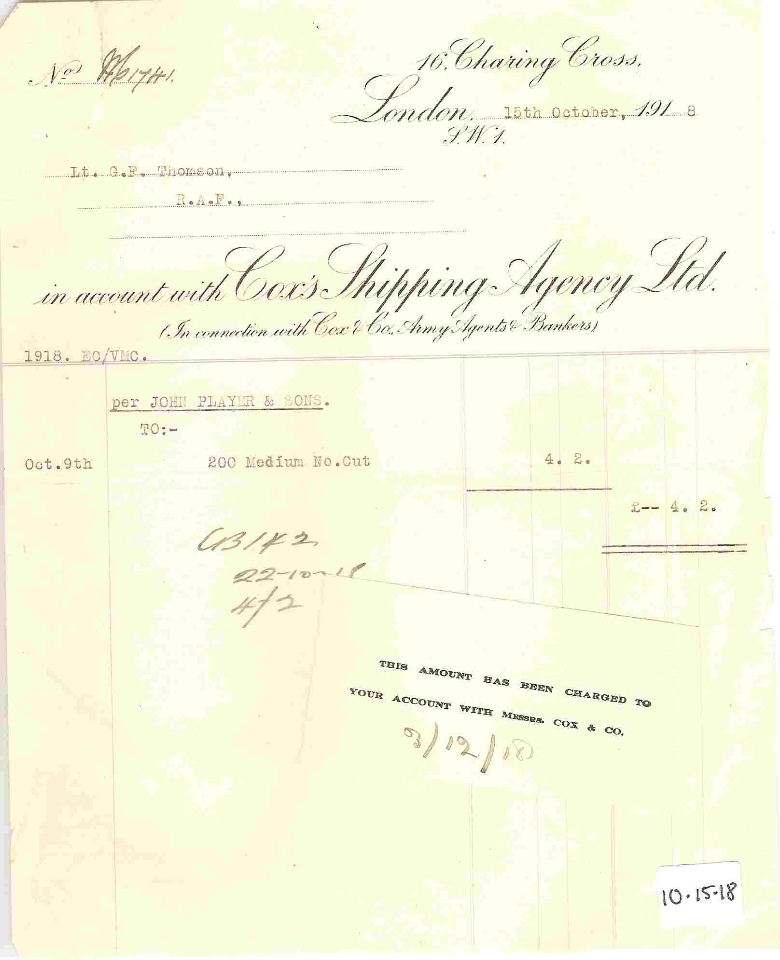 16, Charing Cross,
No 1741.
London. 15th October, 1918
S.W.1.
Lt. G.F. Thomson,
R.A.F.,
in account with Cox's Shipping Agency Ltd.
(In connection with Cox & Co. Army Agents & Bankers)
1918. EC/VMC.
per JOHN PLAYER & SONS.
TO:-
Oct.9th 200 Medium No.Cut 4. 2.
£-- 4. 2.
22-10-18
4/2
THIS AMOUNT HAS BEEN CHARGED TO
YOUR ACCOUNT WITH MESSRS. COX & CO.
3/12/18
10·15·18